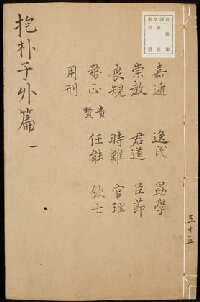 嘉遯 逸民 勗學
崇敎 君道 臣節
良規 時難 官理
務正 貴賢 任能 欽士
用刑
抱朴子外篇 一